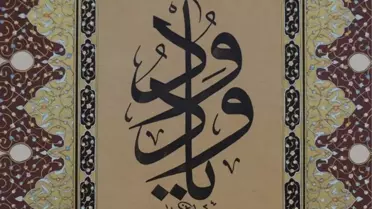 يا ودود